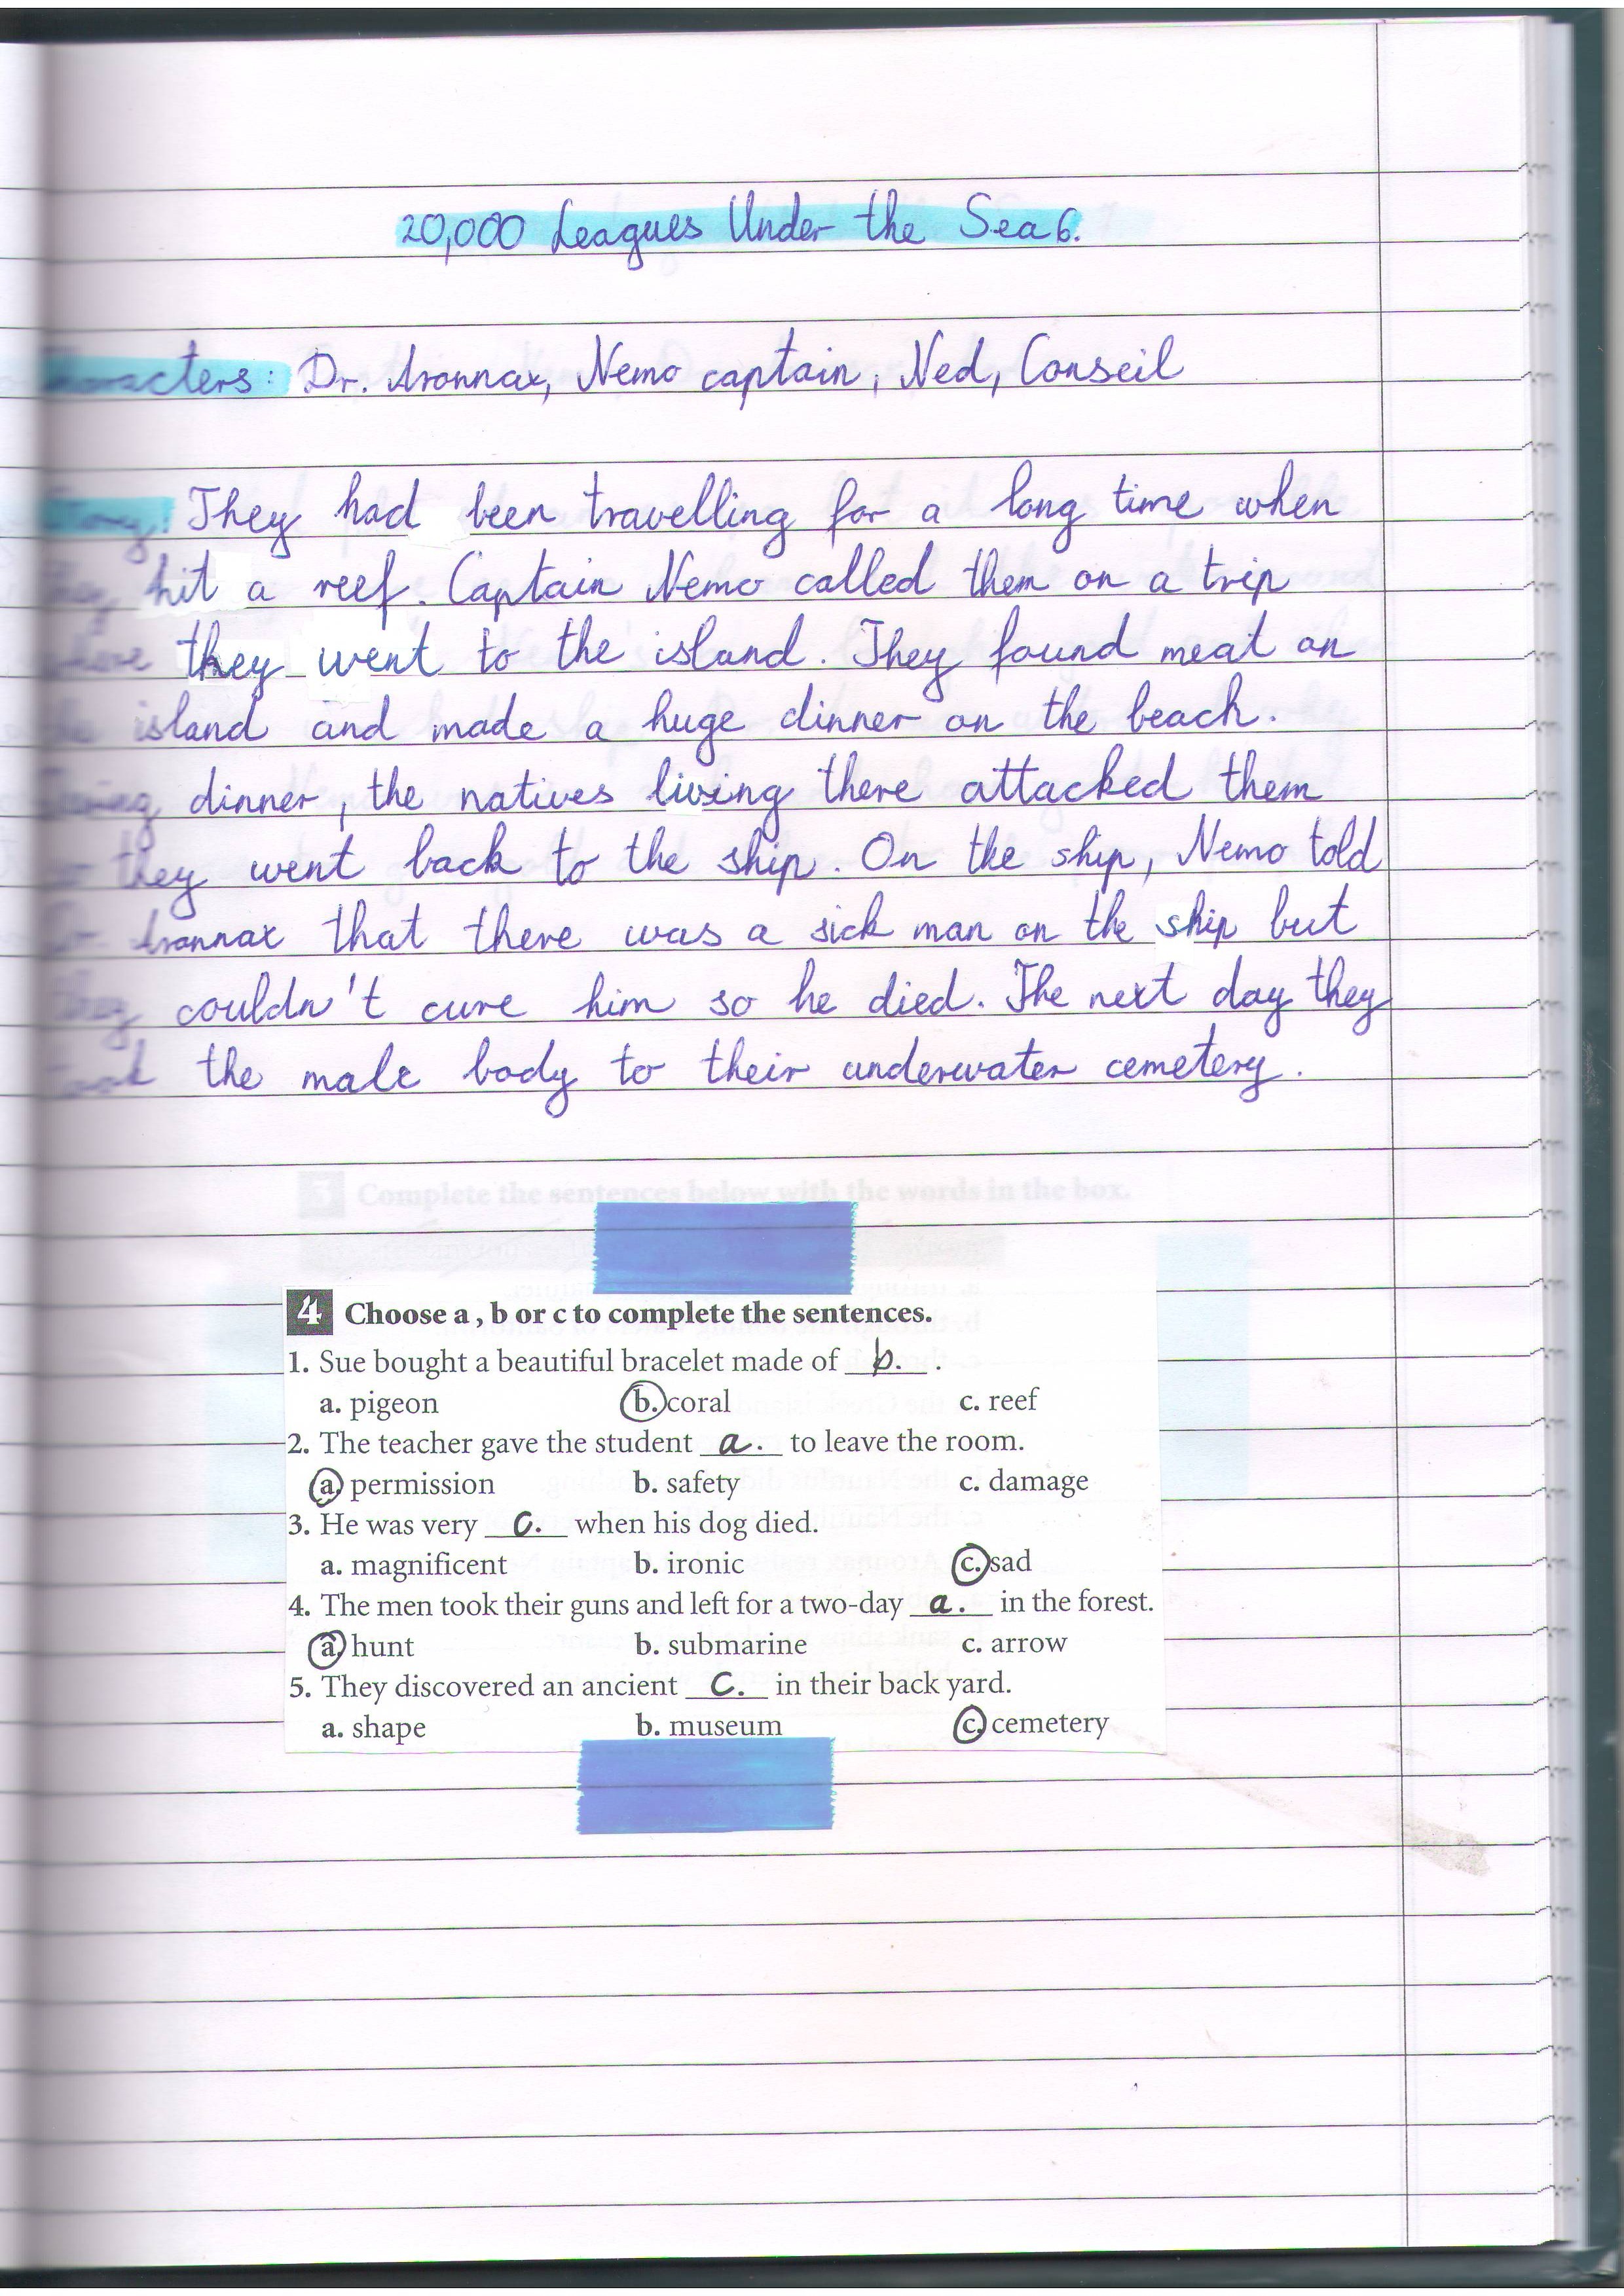 20,000 Leagues Under the Sea 6.
Characters: Dr. Aronnax, Nemo captain, Ned, Conseil
Story: They had been travelling for a long time when
they hit a reef. Captain Nemo called them on a trip
where they went to the island. They found meat on
the island and made a huge dinner on the beach.
During dinner, the natives living there attacked them
so they went back to the ship. On the ship, Nemo told
Dr. Aronnax that there was a sick man on the ship but
they couldn't cure him so he died. The next day they
took the male body to their underwater cemetery.
5 Complete the sentences below with the words in the box.
4 Choose a , b or c to complete the sentences.
1. Sue bought a beautiful bracelet made of b. .
a. pigeon b. coral c. reef
2. The teacher gave the student a. to leave the room.
a. permission b. safety c. damage
3. He was very c. when his dog died.
a. magnificent b. ironic c. sad
4. The men took their guns and left for a two-day a. in the forest.
a. hunt b. submarine c. arrow
5. They discovered an ancient c. in their back yard.
a. shape b. museum c. cemetery